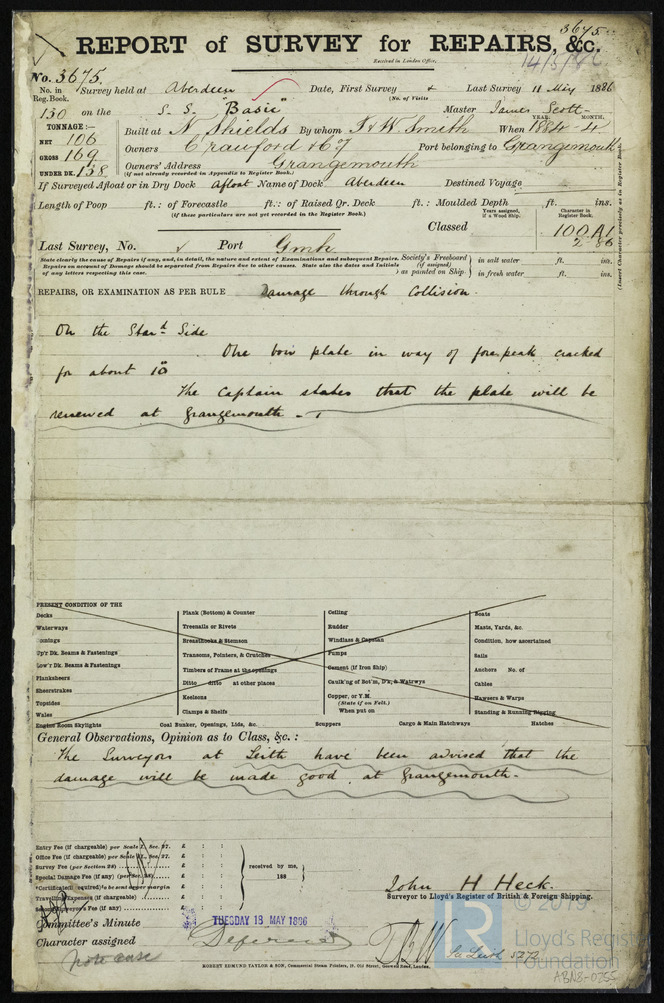 3675.
REPORT of SURVEY for REPAIRS, &c.
Received in London Office,
14/5/86
No. 3675.
No. in Reg. Book. Survey held at Aberdeen Date, First Survey (No. of Visits) Last Survey 11 May 1886
130 on the S. S. "Basic" Master James Scott
TONNAGE:—
NET 106
GROSS 169
UNDER DK. 138
Built at N. Shields By whom T & W. Smith When YEAR. 1884 MONTH. 4
Owners Crawford & Co Port belonging to Grangemouth
Owners' Address Grangemouth
(if not already recorded in Appendix to Register Book.)
If Surveyed Afloat or in Dry Dock Afloat Name of Dock Aberdeen Destined Voyage
Length of Poop ft.: of Forecastle ft.: of Raised Qr. Deck ft.: Moulded Depth ft. ins.
(If these particulars are not yet recorded in the Register Book.)
Years assigned, if a Wood Ship.
Character in Register Book.
Classed 100A1
2 86
(Insert Character precisely as in Register Book.)
Last Survey, No. Port Gmh
State clearly the cause of Repairs if any, and, in detail, the nature and extent of Examinations and subsequent Repairs.
Repairs on account of Damage should be separated from Repairs due to other causes. State also the dates and Initials
of any letters respecting this case.
Society's Freeboard (if assigned) as painted on Ship
in salt water ft. ins.
in fresh water ft. ins.
REPAIRS, OR EXAMINATION AS PER RULE Damage through Collision
On the Starᵈ Side
One bow plate in way of forepeak cracked
for about 10"
The Captain states that the plate will be
renewed at Grangemouth.
PRESENT CONDITION OF THE
Decks
Waterways
Upr Dk. Beams & Fastenings
Low'r Dk. Beams & Fastenings
Planksheers
Sheerstrakes
Topsides
Wales
Engine Room Skylights
Plank (Bottom) & Counter
Treenails or Rivets
Breasthooks & Stemson
Transoms, Pointers, & Crutches
Timbers of Frame at the openings
Ditto ditto at other places
Keelsons
Clamps & Shelfs
Coal Bunker, Openings, Lids, &c.
Ceiling
Rudder
Windlass & Capstan
Pumps
Cement (if Iron Ship)
Caulk'g of Bot'm, D'k, & Watrwys
Copper, or Y.M.
(State if on Felt.)
When put on
Scuppers
Cargo & Main Hatchways
Boats
Masts, Yards, &c.
Condition, how ascertained
Sails
Anchors No. of
Cables
Hawsers & Warps
Standing & Running Rigging
Hatches
General Observations, Opinion as to Class, &c. :
The Surveyors at Leith have been advised that the
damage will be made good at Grangemouth.
Entry Fee (if chargeable) per Scale I., Sec. 27. £ : :
Office Fee (if chargeable) per Scale II., Sec. 27. £ : :
Survey Fee (per Section 28) £ : :
Special Damage Fee (if any) (per Sec. 28) £ : :
Travelling Expenses (if chargeable) £ : :
received by me,
188
John H Heck.
Surveyor to Lloyd's Register of British & Foreign Shipping.
Committee's Minute TUESDAY 18 MAY 1886
Character assigned Deferred
note case
See Leith 5272
ROBERT EDMUND TAYLOR & SON, Commercial Steam Printers, 19, Old Street, Goswell Road, London.
© 2019
LR
Lloyd's Register
Foundation
ABN8-0255